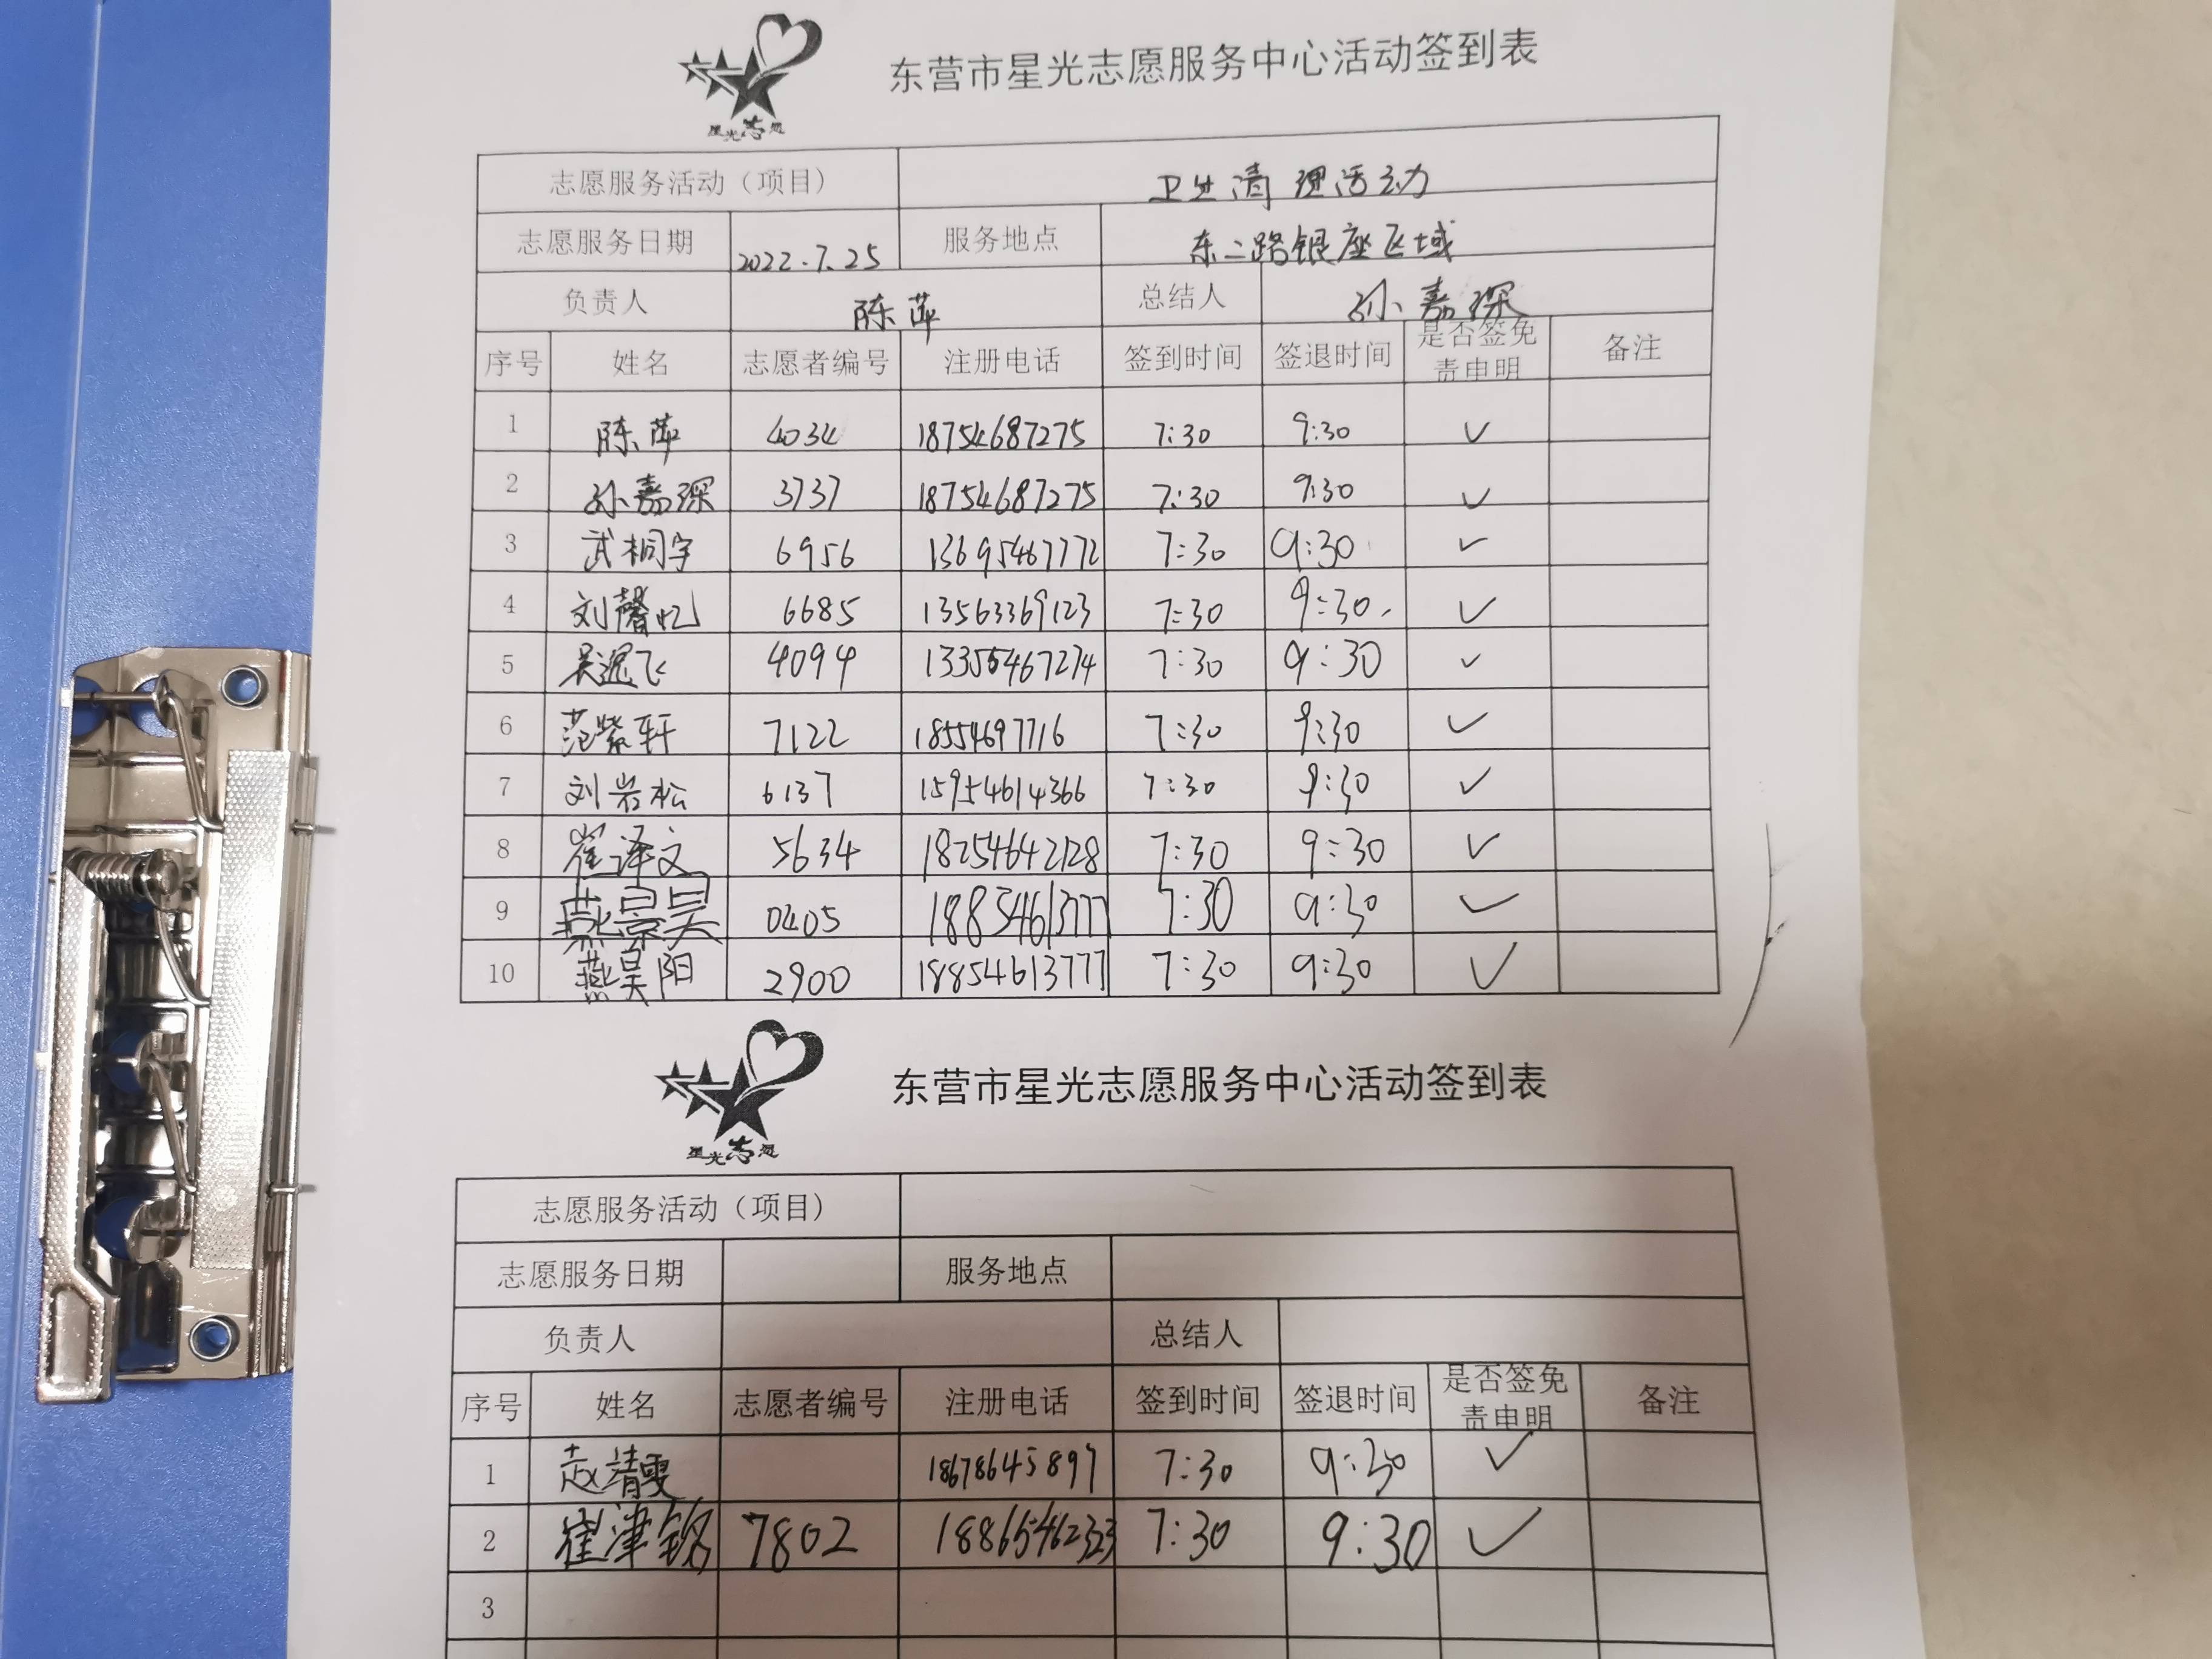 东营市星光志愿服务中心活动签到表
星光志愿
志愿服务活动（项目） 卫生清理活动
志愿服务日期 2022.7.25 服务地点 东二路银座区域
负责人 陈萍 总结人 孙嘉琛
序号 姓名 志愿者编号 注册电话 签到时间 签退时间 是否签免责申明 备注
1 陈萍 4034 18754687275 7:30 9:30 ✓
2 孙嘉琛 3737 18754687275 7:30 9:30 ✓
3 武桐宇 6956 13695467772 7:30 9:30 ✓
4 刘馨忆 6685 13563369123 7:30 9:30 ✓
5 吴逞飞 4094 13355467274 7:30 9:30 ✓
6 范紫轩 7122 18554697716 7:30 9:30 ✓
7 刘岩松 6137 15954614366 7:30 9:30 ✓
8 崔泽文 5634 18254642128 7:30 9:30 ✓
9 燕景昊 0405 18854613777 7:30 9:30 ✓
10 燕昊阳 2900 18854613777 7:30 9:30 ✓
东营市星光志愿服务中心活动签到表
星光志愿
志愿服务活动（项目）
志愿服务日期 服务地点
负责人 总结人
序号 姓名 志愿者编号 注册电话 签到时间 签退时间 是否签免责申明 备注
1 赵靖雯 18678645897 7:30 9:30 ✓
2 崔津铭 7802 18865462323 7:30 9:30 ✓
3